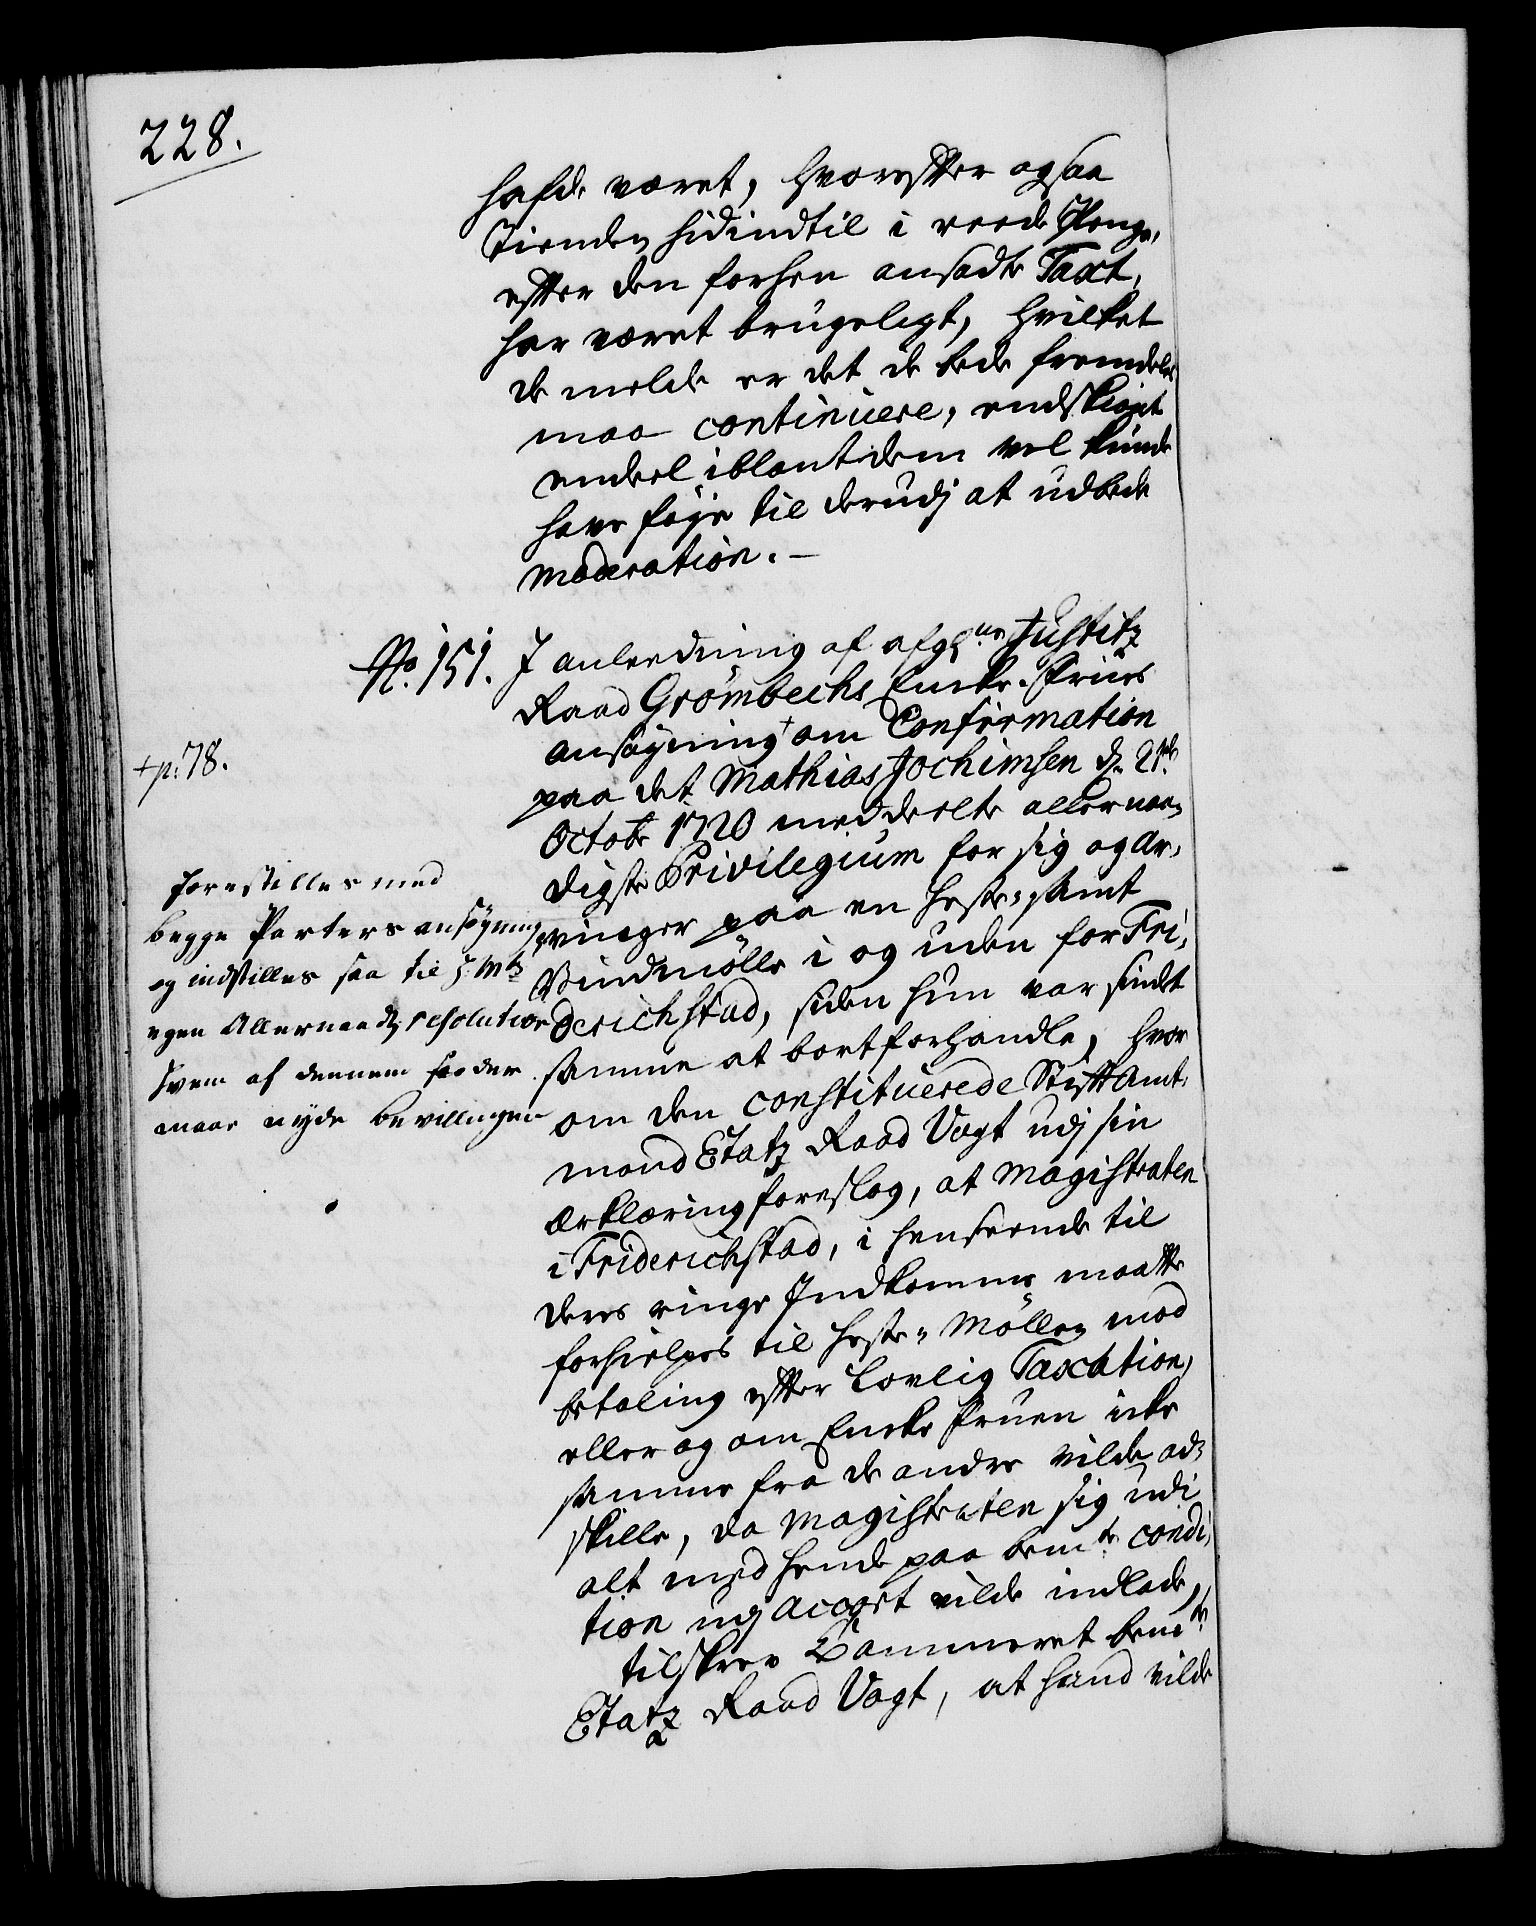 228.
hafde været, hvorefter ogsaa
Tienden hidindtil i reede Penge,
efter den forhen ansadte Taxt,
har været brugeligt, hvilket
de melde er det de bede fremdeles
maa continuere, endskiønt
endeel iblant dem vel kunde
have føye til derudj at udbede
moderation. -
No. 151. J anleedning af afgl. Justitz
Raad Grømbechs Encke-Frues
ansøgning + om Confirmation
+ p: 78.
paa det Mathias Jochimsen d. 21de
Octobr 1720 meddeelte allernaa-
digste Privilegium for sig og Ar-
vinger paa en Heste- samt
Vindmølle i og uden for Fri-
derichstad, siden hun var sindet
samme at bortforhandle, hvor
om den constituerede Stifft Amt-
mand Etatz Raad Vogt udj sin
Erklæring foreslog, at Magistraten
i Friderichstad, i henseende til
deres ringe Indkomme maatte
forhielpes til Heste-Møllen mod
betaling efter Lovlig Taxation,
eller og om Encke Fruen icke
samme fra de andre vilde ad-
skille, da Magistraten sig udi
alt med hende paa bemte condi-
tion udj accort vilde indlade,
tilskrev Cammeret bemte
Etatz Raad Vogt, at hand vilde
Forestilles med
begge Parters ansøgning
og indstilles saa til H: Mts
egen Allernaadz resolution
hvem af dennem som der
maae nyde bevillingen